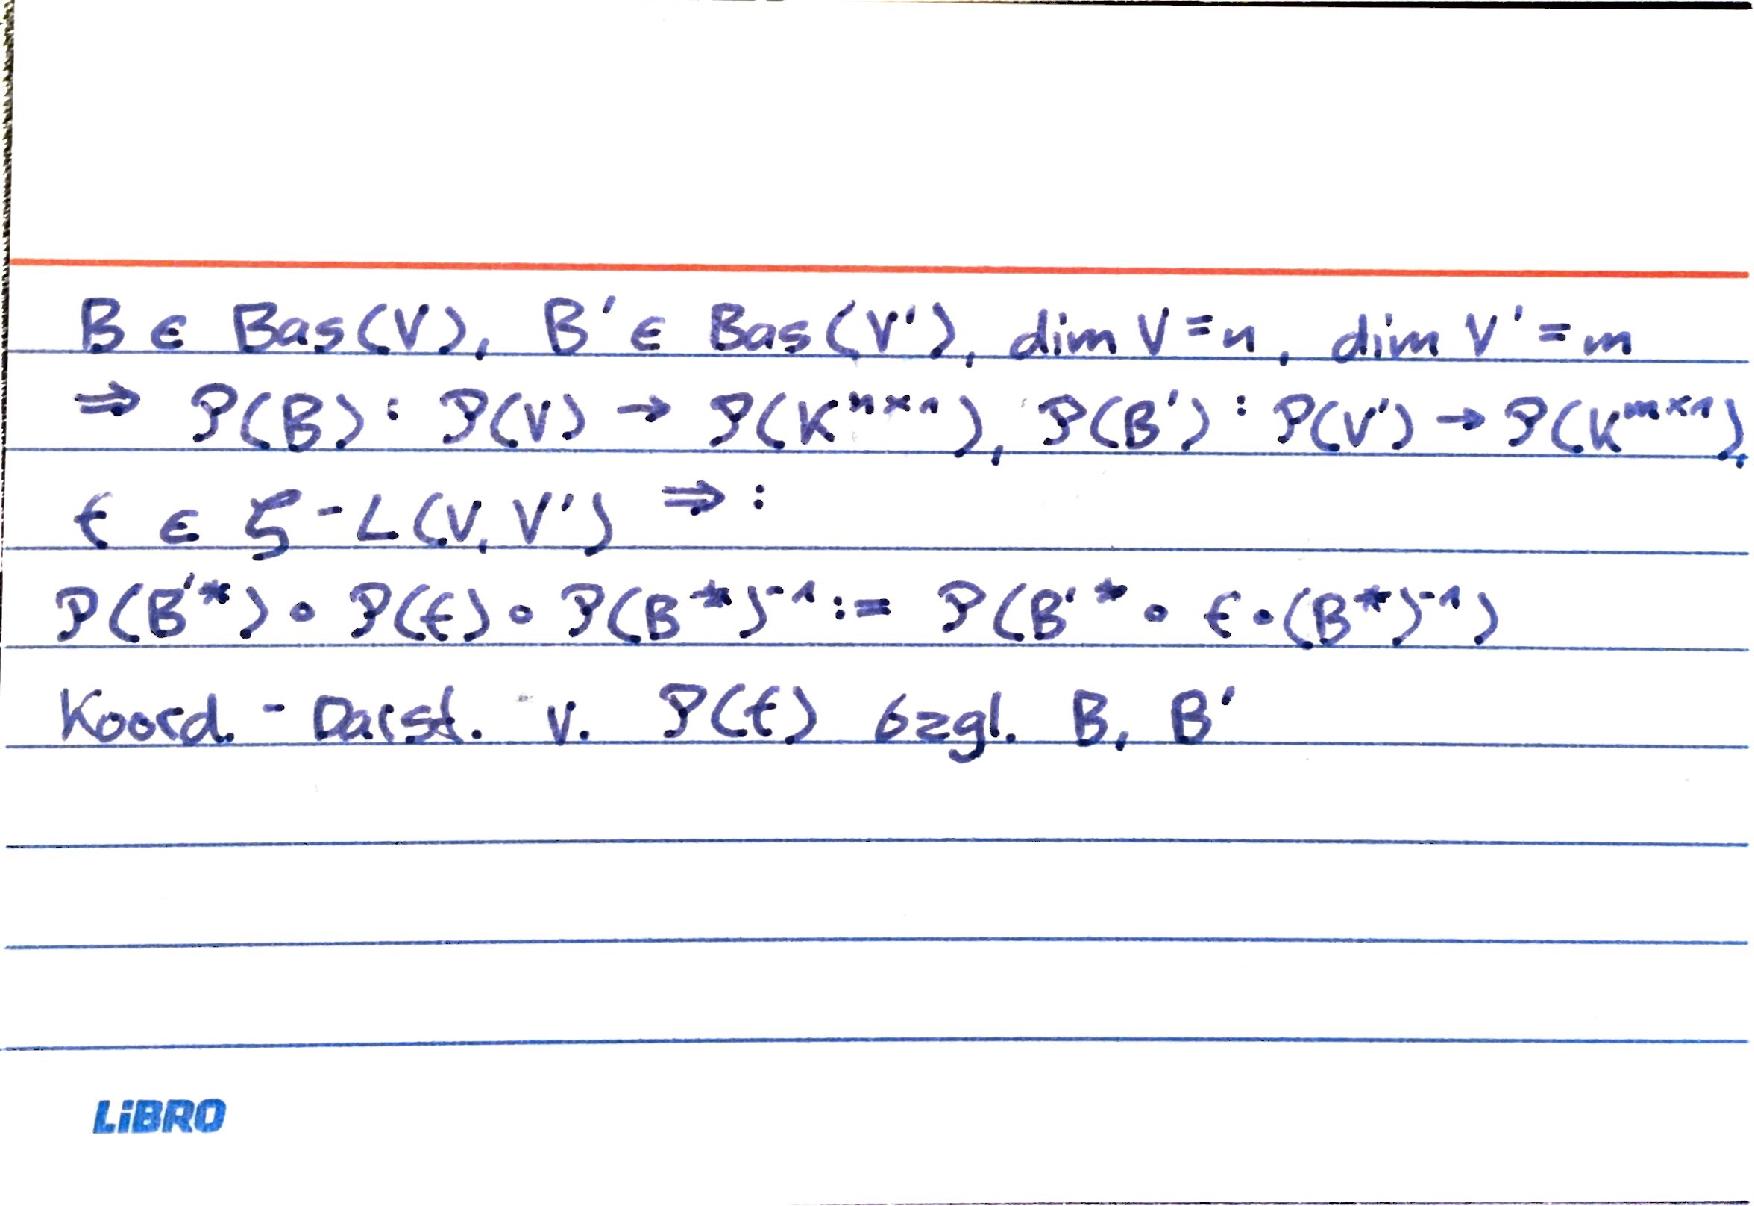 B ∈ Bas(V), B' ∈ Bas(V'), dim V = n, dim V' = m
⇒ P(B) : P(V) → P(Kⁿˣ¹), P(B') : P(V') → P(Kᵐˣ¹),
f ∈ ζ-L(V, V') ⇒ :
P(B'*) ∘ P(f) ∘ P(B*)⁻¹ := P(B'* ∘ f ∘ (B*)⁻¹)
Koord. - Darst. v. P(f) bzgl. B, B'
LiBRO